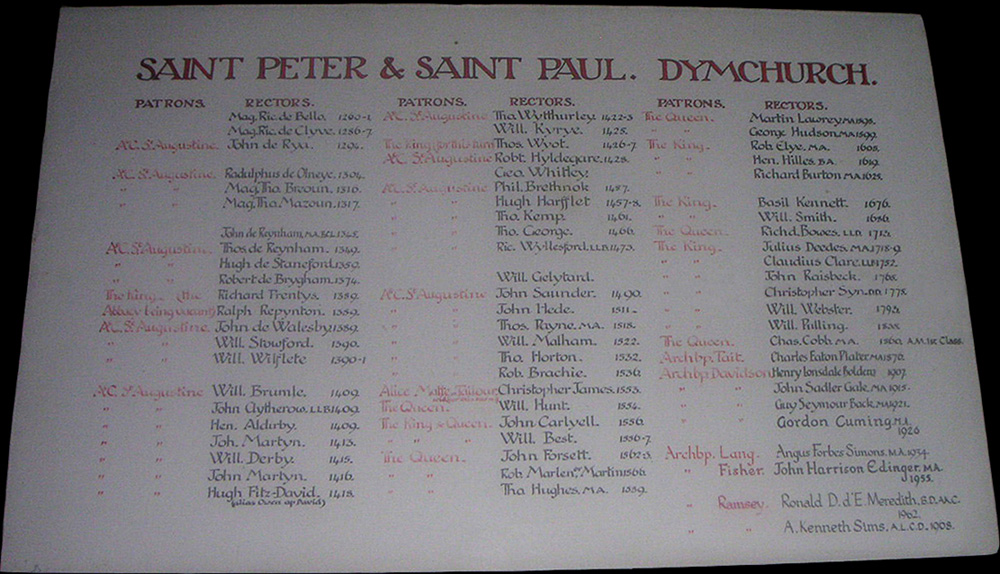 SAINT PETER & SAINT PAUL. DYMCHURCH.
PATRONS. RECTORS.
Mag. Ric. de Bello. 1260-1
Mag. Ric. de Clyve. 1286-7.
A.C. St. Augustine. John de Rya. 1294.
A.C. St. Augustine. Radulphus de Olneye. 1304.
" " Mag. Tho. Broun. 1316.
" " Mag. Tho. Mazoun. 1317.
John de Reynham, M.A. B.C.L. 1348.
A.C. St. Augustine. Thos de Reynham. 1349.
" " Hugh de Staneford. 1359.
" " Robert de Brygham. 1374.
The King. (the Richard Prentys. 1389.
Abbacy being vacant) Ralph Repynton. 1389.
A.C. St. Augustine. John de Walesby. 1389.
" " Will. Stowford. 1390.
" " Will. Wilflete 1390-1
A.C. St. Augustine Will. Brumle. 1409.
" " John Clytherow. LL.B. 1409.
" " Hen. Aldirby. 1409.
" " Joh. Martyn. 1413.
" " Will. Derby. 1415.
" " John Martyn. 1416.
" " Hugh Fitz-David. 1418.
(alias Owen ap David)
PATRONS. RECTORS.
A.C. St. Augustine Tho. Wytthurley. 1422-3.
" " Will. Kyrye. 1425.
The King (for this turn) Thos. Wyot. 1426-7.
A.C. St. Augustine Robt. Hyldegare. 1428.
" " Geo. Whitley.
A.C. St. Augustine Phil. Brethnok 1457.
" " Hugh Harfflet 1457-8.
" " Tho. Kemp. 1461.
" " Tho. George. 1466.
" " Ric. Wyllesford. LL.B. 1473.
" " Will. Gelytard.
A.C. St. Augustine John Saunder. 1490.
" " John Hede. 1511.
" " Thos. Rayne. M.A. 1518.
" " Will. Malham. 1522.
" " Tho. Horton. 1532.
" " Rob. Brachie. 1536.
Alice Christopher James. 1553.
The Queen. Will. Hunt. 1554.
The King & Queen. John Carlyell. 1556.
" " Will. Best. 1556-7.
The Queen. John Forsett. 1562-3.
" " Rob. Marlen, or Martin 1566.
" " Tho. Hughes. M.A. 1589.
PATRONS. RECTORS.
The Queen. Martin Lawney M.A. 1598.
" " George Hudson. M.A. 1599.
The King. Rob. Elye. M.A. 1608.
" " Hen. Hilles. B.A. 1619.
" " Richard Burton M.A. 1625.
The King. Basil Kennett. 1676.
" " Will. Smith. 1686.
The Queen. Richd. Bowes. LL.D. 1713.
The King. Julius Deedes. M.A. 1718-9.
" " Claudius Clare. LL.B. 1752.
" " John Raisbeck. 1768.
" " Christopher Syn. D.D. 1778.
" " Will. Webster. 1793.
" " Will. Pilling.
The Queen. Chas. Cobb. M.A. 1860. A.M. 1st Class.
Archbp. Tait. Charles Eaton Plater M.A. 1876.
Archbp. Davidson Henry Lonsdale Bolden 1907.
" " John Sadler Gale. M.A. 1915.
" " Guy Seymour Back. M.A. 1921.
" " Gordon Cuming. M.A.
1926
Archbp. Lang. Angus Forbes Simons. M.A. 1934.
" Fisher. John Harrison Edinger. M.A.
1955.
" Ramsey. Ronald D. d'E. Meredith. B.D. A.K.C.
1962.
" " A. Kenneth Sims. A.L.C.D. 1968.